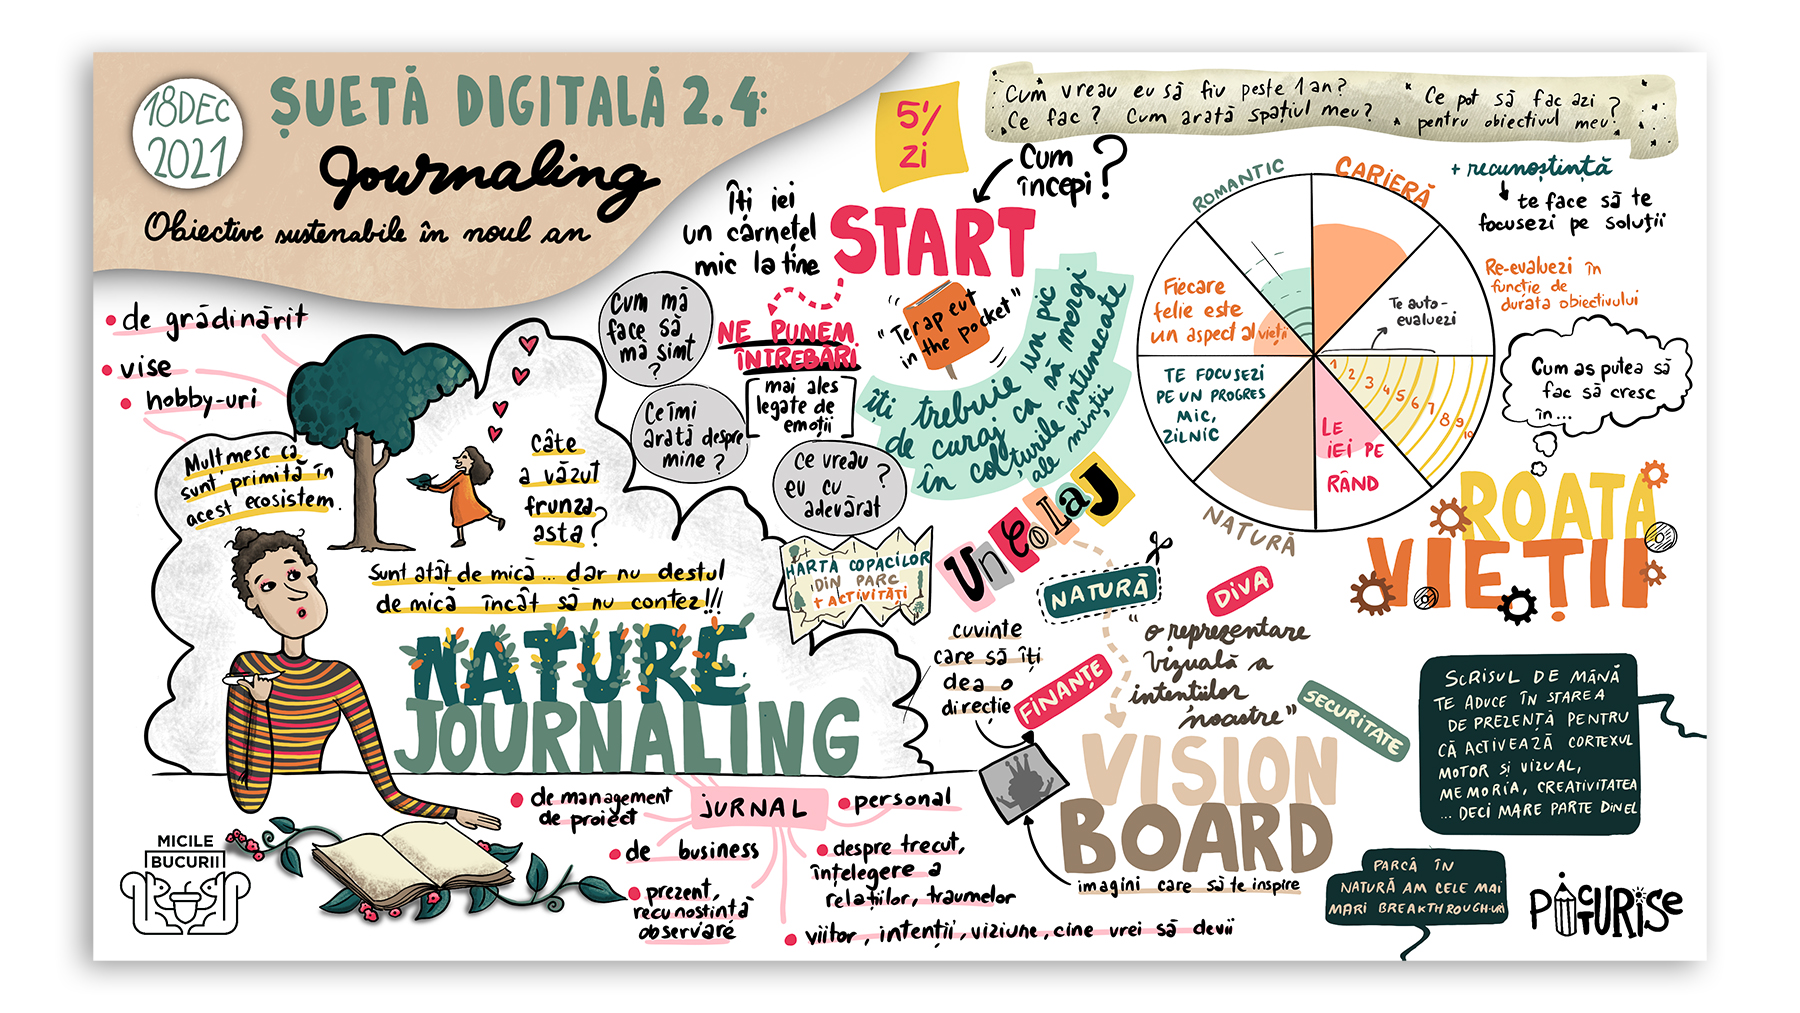 18 DEC
2021
ȘUETĂ DIGITALĂ 2.4:
Journaling
Obiective sustenabile în noul an
5'/
zi
Cum vreau eu să fiu peste 1 an?
Ce fac? Cum arată spațiul meu?
Ce pot să fac azi
pentru obiectivul meu?
Cum
începi?
Îți iei
un carnețel
mic la tine
START
"Terapeut
in the pocket"
NE PUNEM
ÎNTREBĂRI
[mai ales
legate de
emoții]
Cum mă
face să
mă simt
?
Ce îmi
arată despre
mine?
Ce vreau
eu cu
adevărat?
îți trebuie un pic
de curaj ca să mergi
în colțurile întunecate
ale minții
ROMANTIC
CARIERĂ
NATURĂ
Fiecare
felie este
un aspect al vieții
Te auto-
evaluezi
TE FOCUSEZI
PE UN PROGRES
MIC,
ZILNIC
LE
IEI PE
RÂND
1 2 3 4 5 6 7 8 9 10
+ recunoștință
te face să te
focusezi pe soluții
Re-evaluezi în
funcție de
durata obiectivului
Cum aș putea să
fac să cresc
în...
ROATA
VIEȚII
• de grădinărit
• vise
• hobby-uri
Mulțumesc că
sunt primită în
acest ecosistem.
Câte
a văzut
frunza
asta?
Sunt atât de mică... dar nu destul
de mică încât să nu contez!!!
NATURE
JOURNALING
HARTA COPACILOR
DIN PARC
+ ACTIVITĂȚI
Un COLAJ
NATURĂ
DIVA
FINANȚE
SECURITATE
cuvinte
care să îți
dea o
direcție
"o reprezentare
vizuală a
intențiilor
noastre"
VISION
BOARD
imagini care să te inspire
SCRISUL DE MÂNĂ
TE ADUCE ÎN STAREA
DE PREZENȚĂ PENTRU
CĂ ACTIVEAZĂ CORTEXUL
MOTOR ȘI VIZUAL,
MEMORIA, CREATIVITATEA
... DECI MARE PARTE DIN EL
PARCĂ ÎN
NATURĂ AM CELE MAI
MARI BREAKTHROUGH-URI
JURNAL
• de management
de proiect
• personal
• de business
• despre trecut,
înțelegere a
relațiilor, traumelor
• prezent,
recunostință
observare
• viitor, intenții, viziune, cine vrei să devii
MICILE
BUCURII
PICTURISE